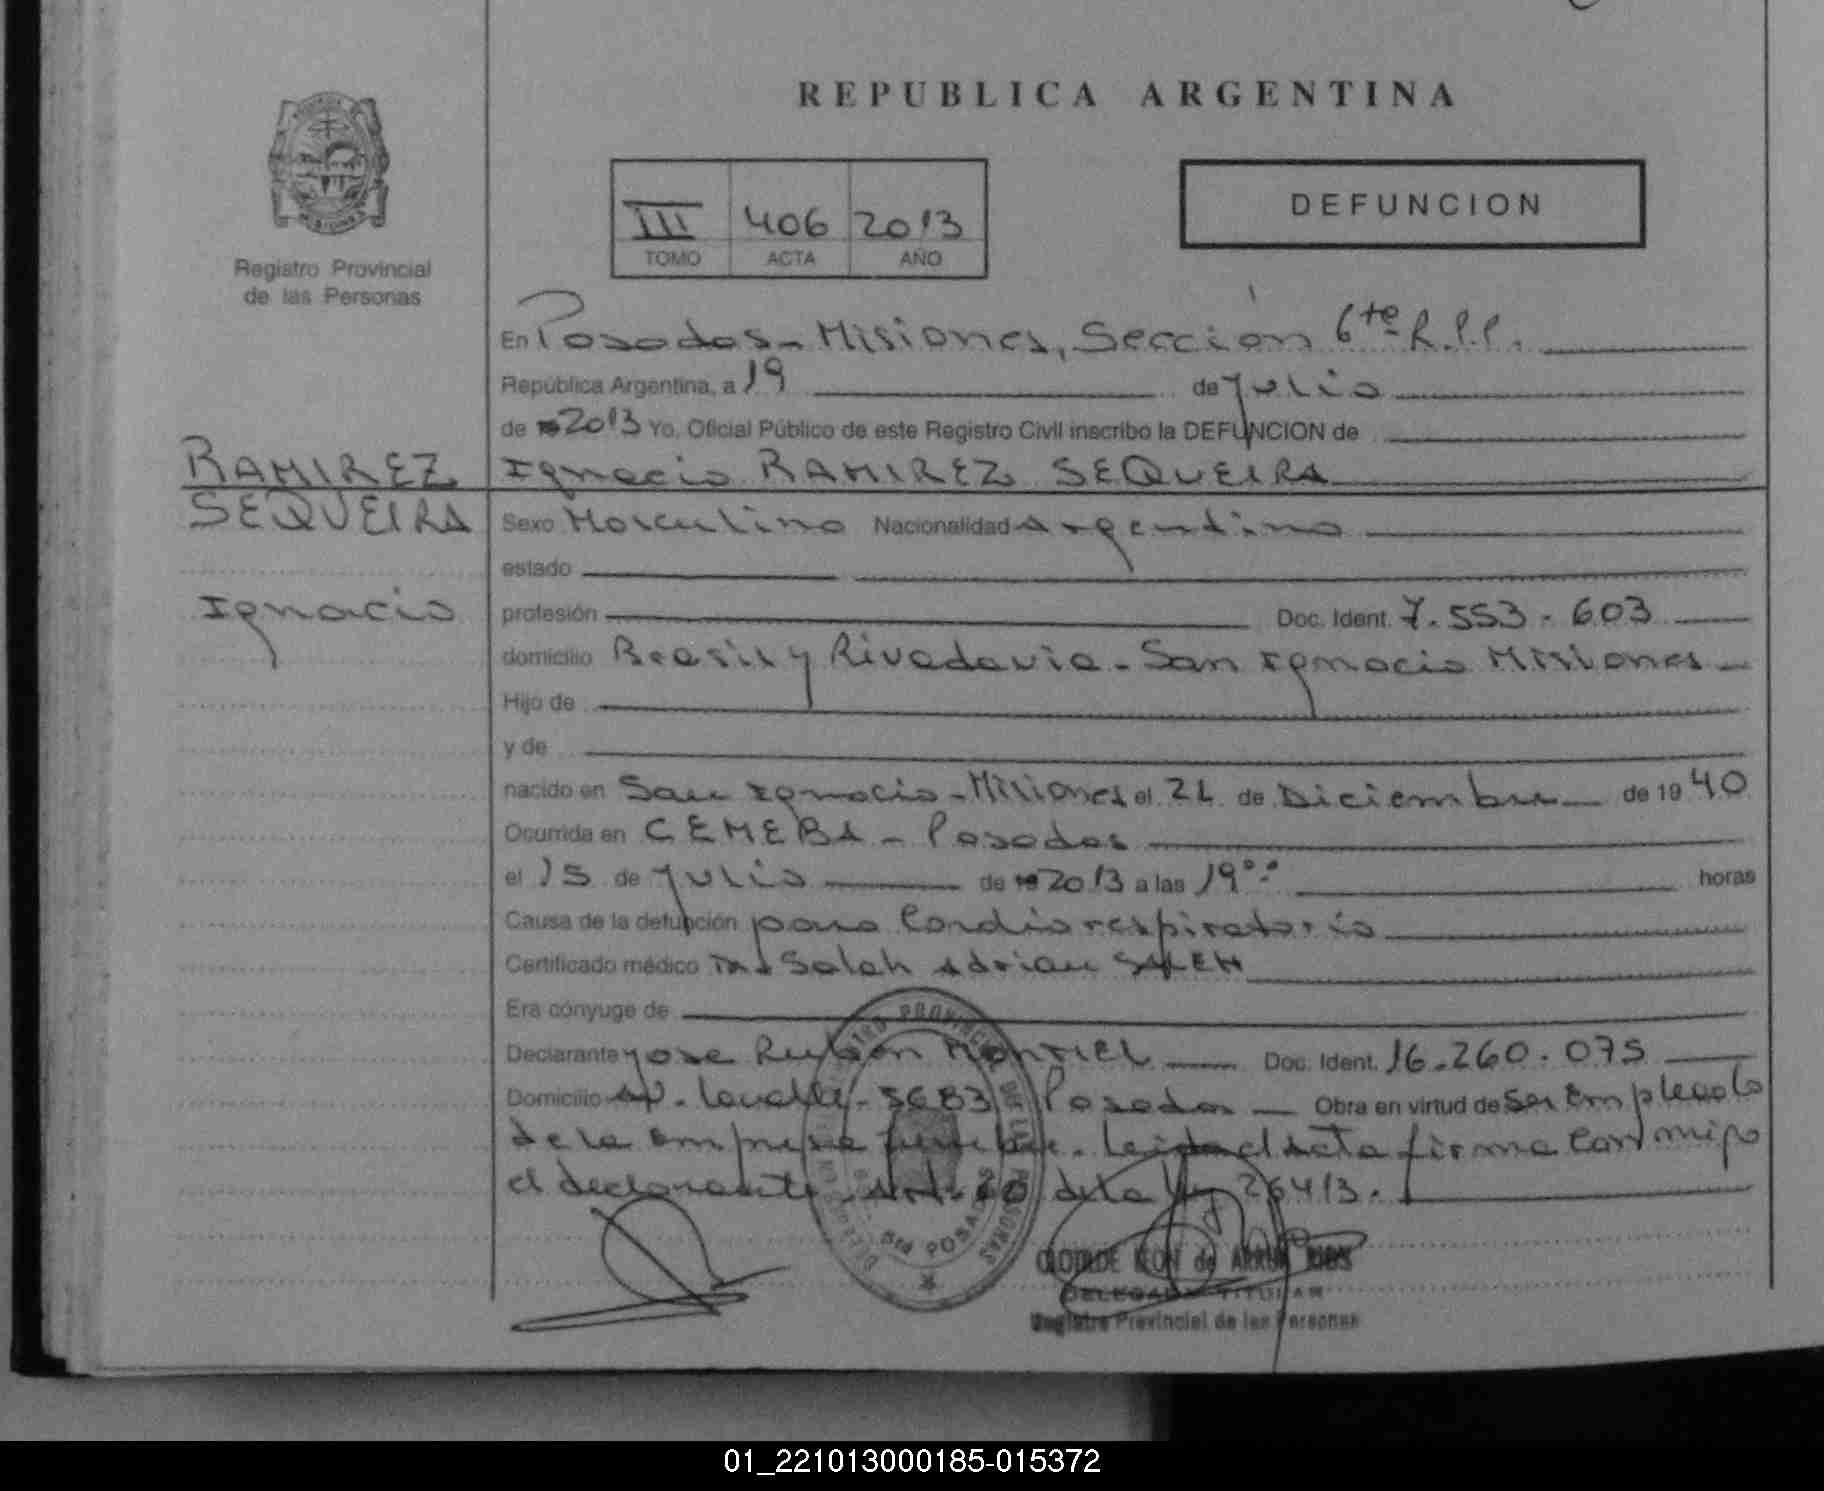 REPUBLICA ARGENTINA
Registro Provincial
de las Personas
III 406 2013
TOMO ACTA AÑO
DEFUNCION
En Posadas - Misiones, Sección 6ta R.P.P.
República Argentina, a 19 de Julio
de 2013 Yo, Oficial Público de este Registro Civil inscribo la DEFUNCION de
RAMIREZ
SEQUEIRA
Ignacio
Ignacio RAMIREZ SEQUEIRA
Sexo Masculino Nacionalidad Argentino
estado
profesión Doc. Ident. 7.553.603
domicilio Brasil y Rivadavia - San Ignacio Misiones
Hijo de
y de
nacido en San Ignacio - Misiones el de Diciembre de 1940
Ocurrida en CEMEBA - Posadas
el 15 de Julio de 2013 a las 19 horas
Causa de la defunción paro Cardiorespiratorio
Certificado médico Salah Adrian SALEH
Era cónyuge de
Declarante Jose Ruben MONTIEL Doc. Ident. 16.260.075
Domicilio Av. Lavalle - 5683 Posadas Obra en virtud de ser Empleado
de la Empresa funebre. Leida el Acta firma Con migo
el declarante. Art. de la Ley 26413.
REGISTRO PROVINCIAL DE LAS PERSONAS
6ta POSADAS
de ARRUA RIOS
DELEGADA TITULAR
Registro Provincial de las Personas
01_221013000185-015372